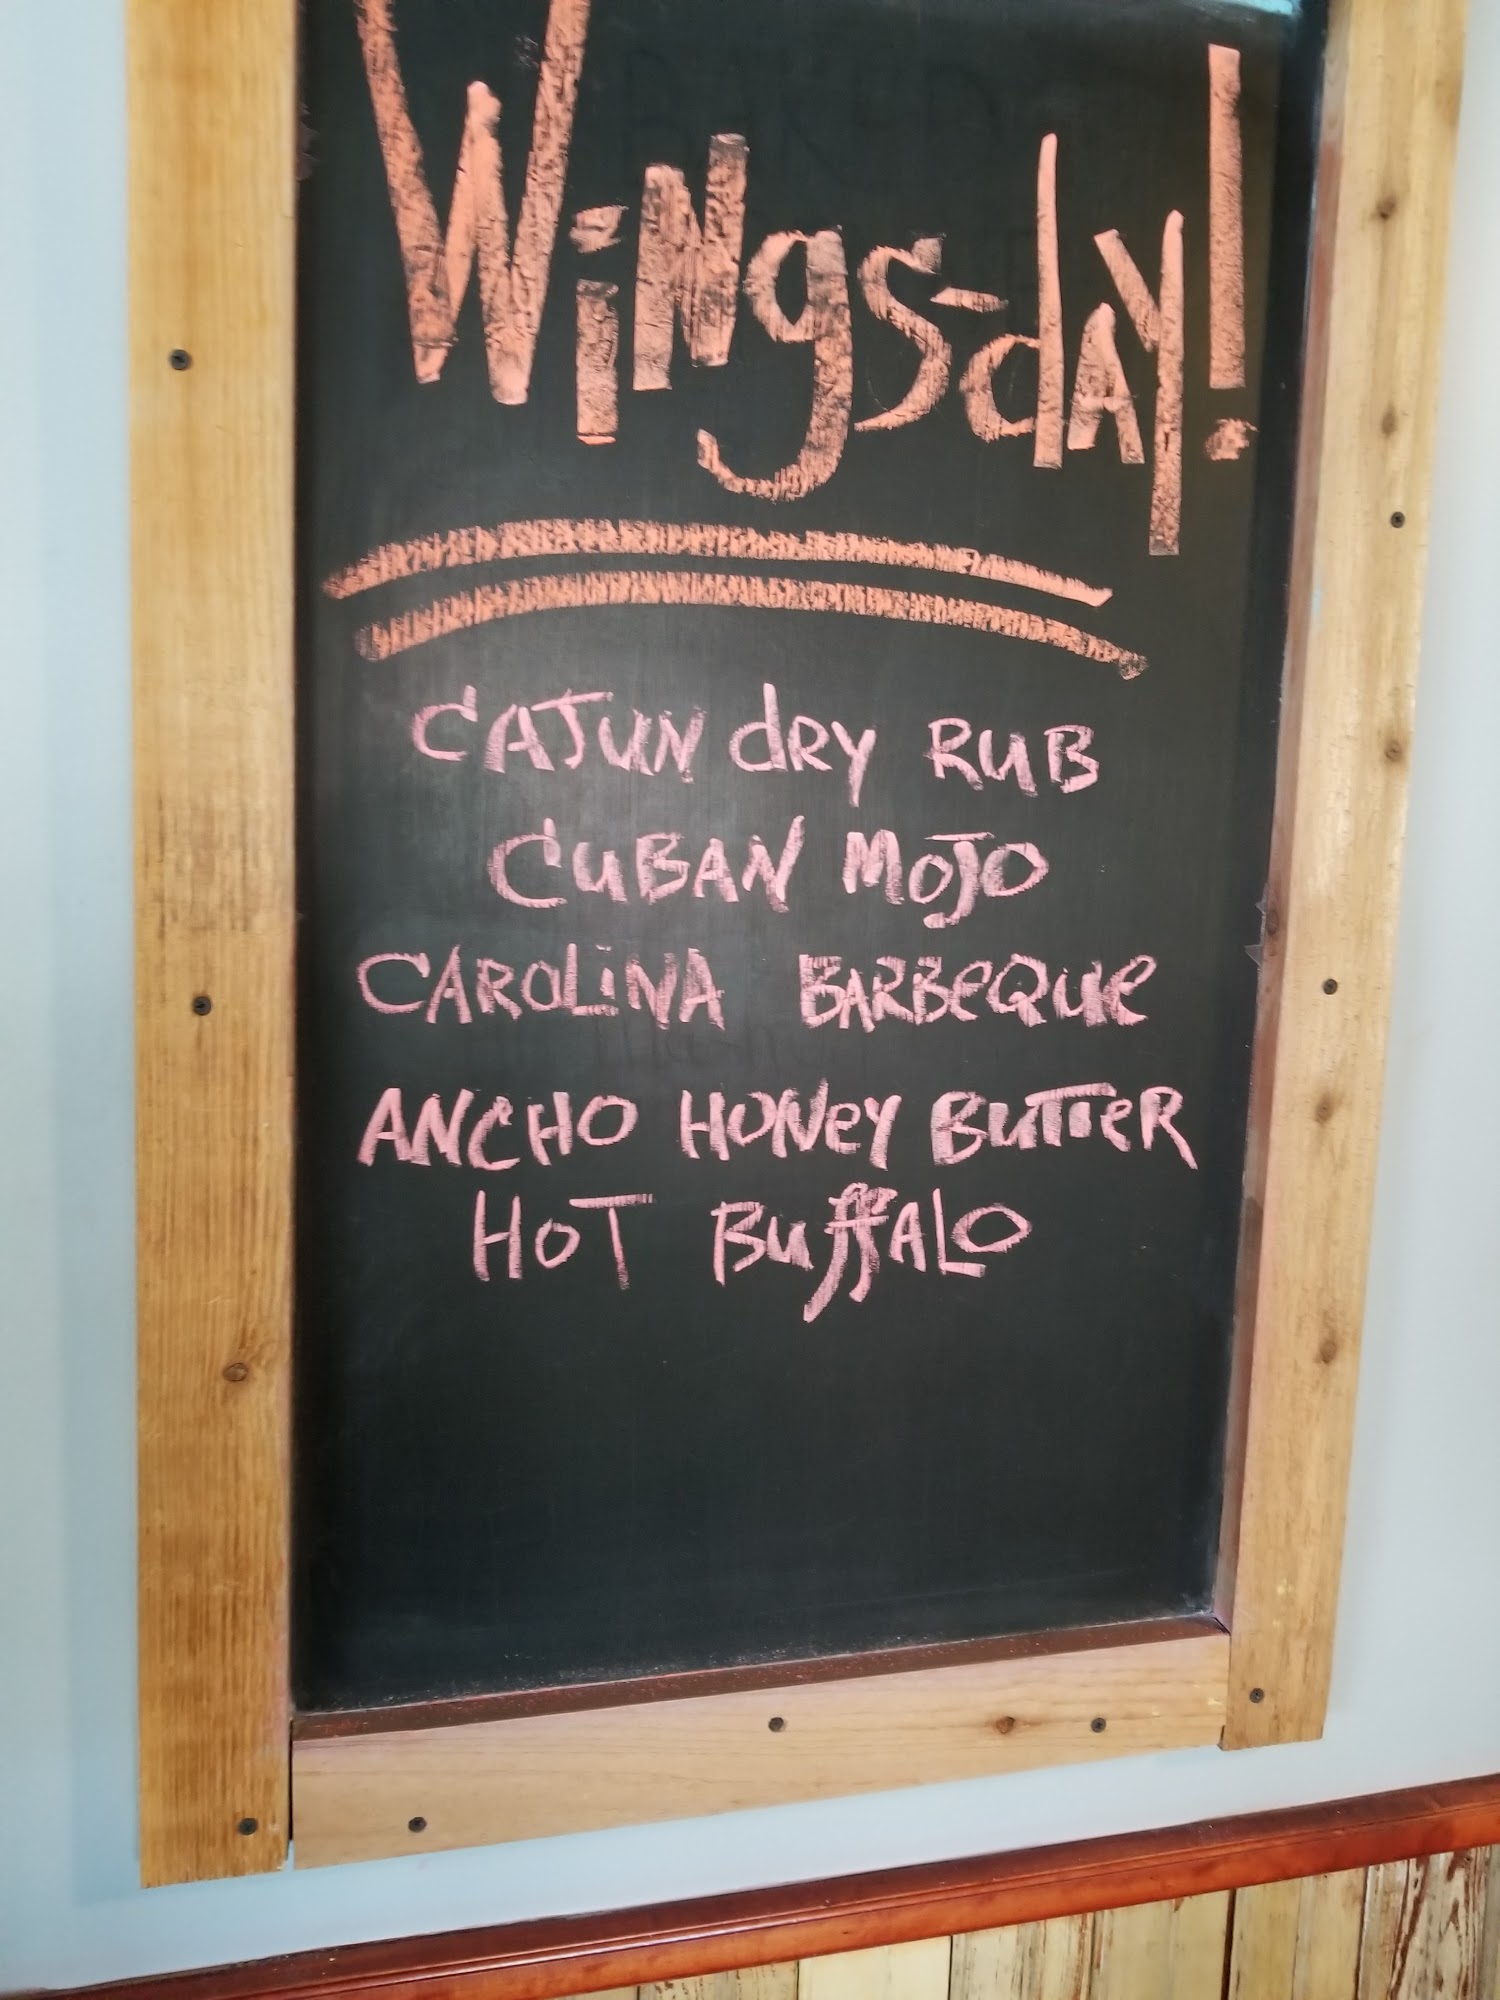 WiNgs-dAy!
CAJUN dRY RUB
CUBAN MOJO
CAROLiNA BARBeQUe
ANCHO HONey BUTTeR
HOT BuffALO